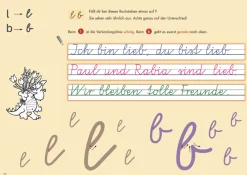 l → l
b → b
l b
Fällt dir bei diesen Buchstaben etwas auf?
Sie sehen sehr ähnlich aus. Achte genau auf den Unterschied!
Beim l ist die Verbindung eckig. Beim b geht es
Ich bin lieb, du bist lieb.
Paul und Rabia sind lieb.
Wir bleiben tolle Freunde.
l l l b b b b b